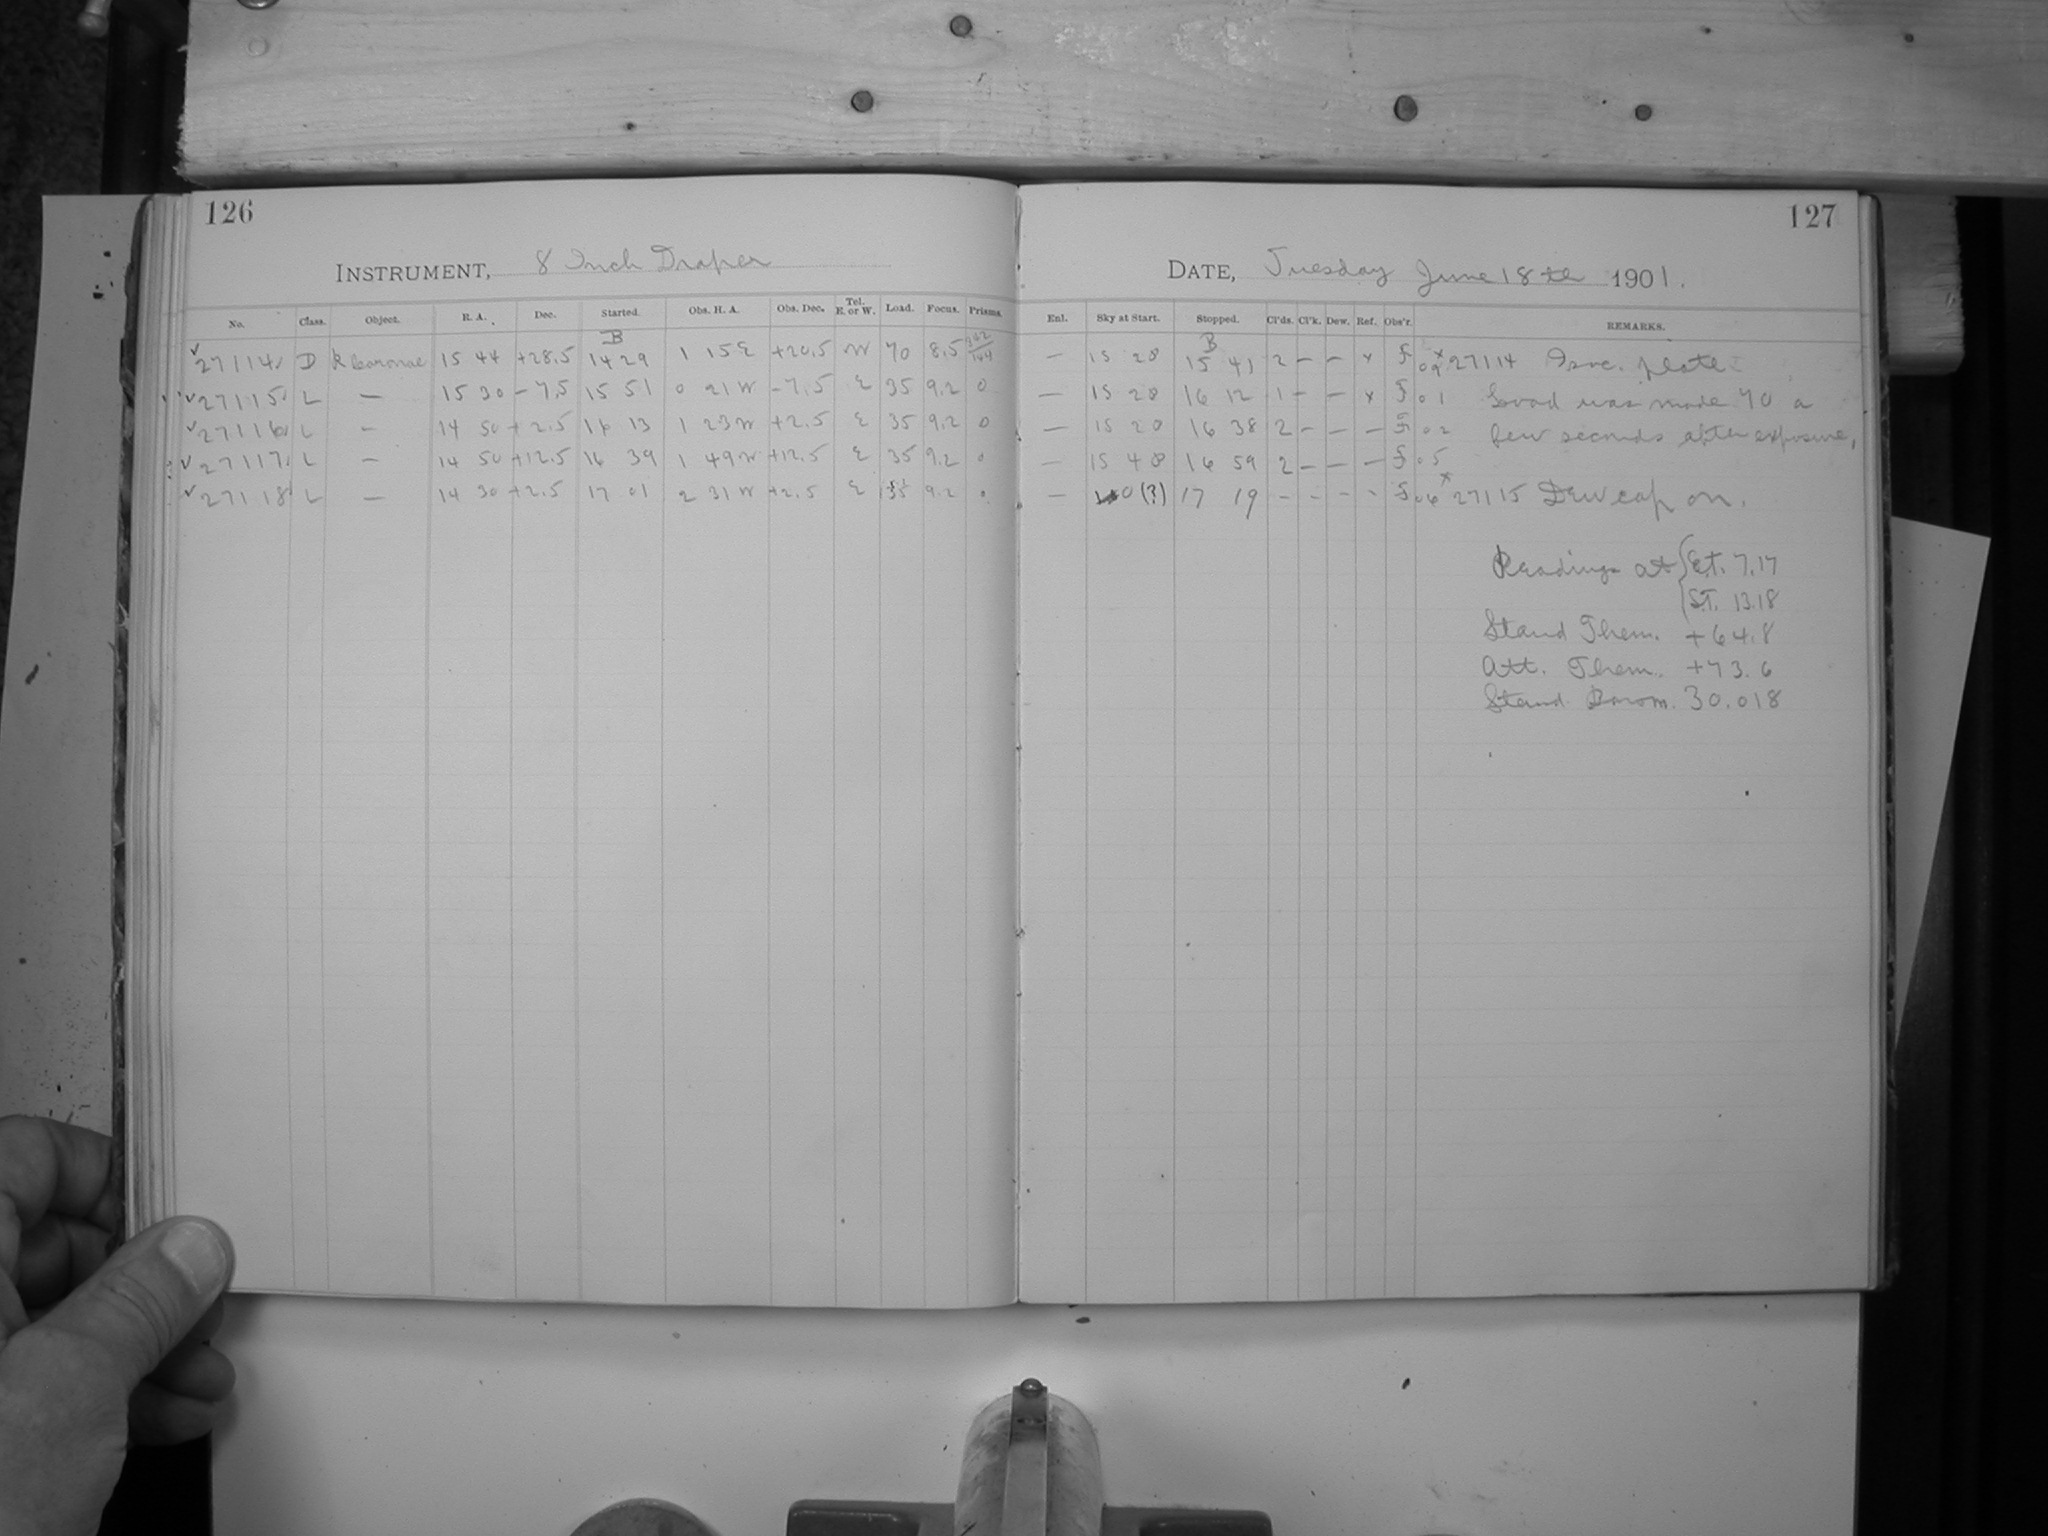 126
INSTRUMENT, 8 Inch Draper
No. Class. Object. R. A. Dec. Started. Obs. H. A. Obs. Dec. Tel. E. or W. Load. Focus. Prisms.
B
27114 D R Coronae 15 44 +28.5 14 29 1 15 E +20.5 W 70 8.5
27115 L — 15 30 -7.5 15 51 0 21 W -7.5 E 35 9.2 0
27116 L — 14 50 +2.5 16 13 1 23 W +2.5 E 35 9.2 0
27117 L — 14 50 +12.5 16 39 1 49 W +12.5 E 35 9.2 0
27118 L — 14 30 +2.5 17 01 2 31 W +2.5 E 35 9.2 0
127
DATE, Tuesday June 18th 1901.
Enl. Sky at Start. Stopped. Cl'ds. Cl'k. Dew. Ref. Obs'r. REMARKS.
B
— 15 28 15 41 2 — — x 27114 Isoc. plate.
— 15 28 16 12 1 — — x 01 Load was made 70 a
— 15 20 16 38 2 — — — 02 few seconds after exposure,
— 15 48 16 59 2 — — — 05
— 0 (?) 17 19 - - - - 06 x 27115 Dew cap on.
Readings at { E.T. 7.17
S.T. 13.18
Stand Therm. +64.8
Att. Therm. +73.6
Stand. Barom. 30.018